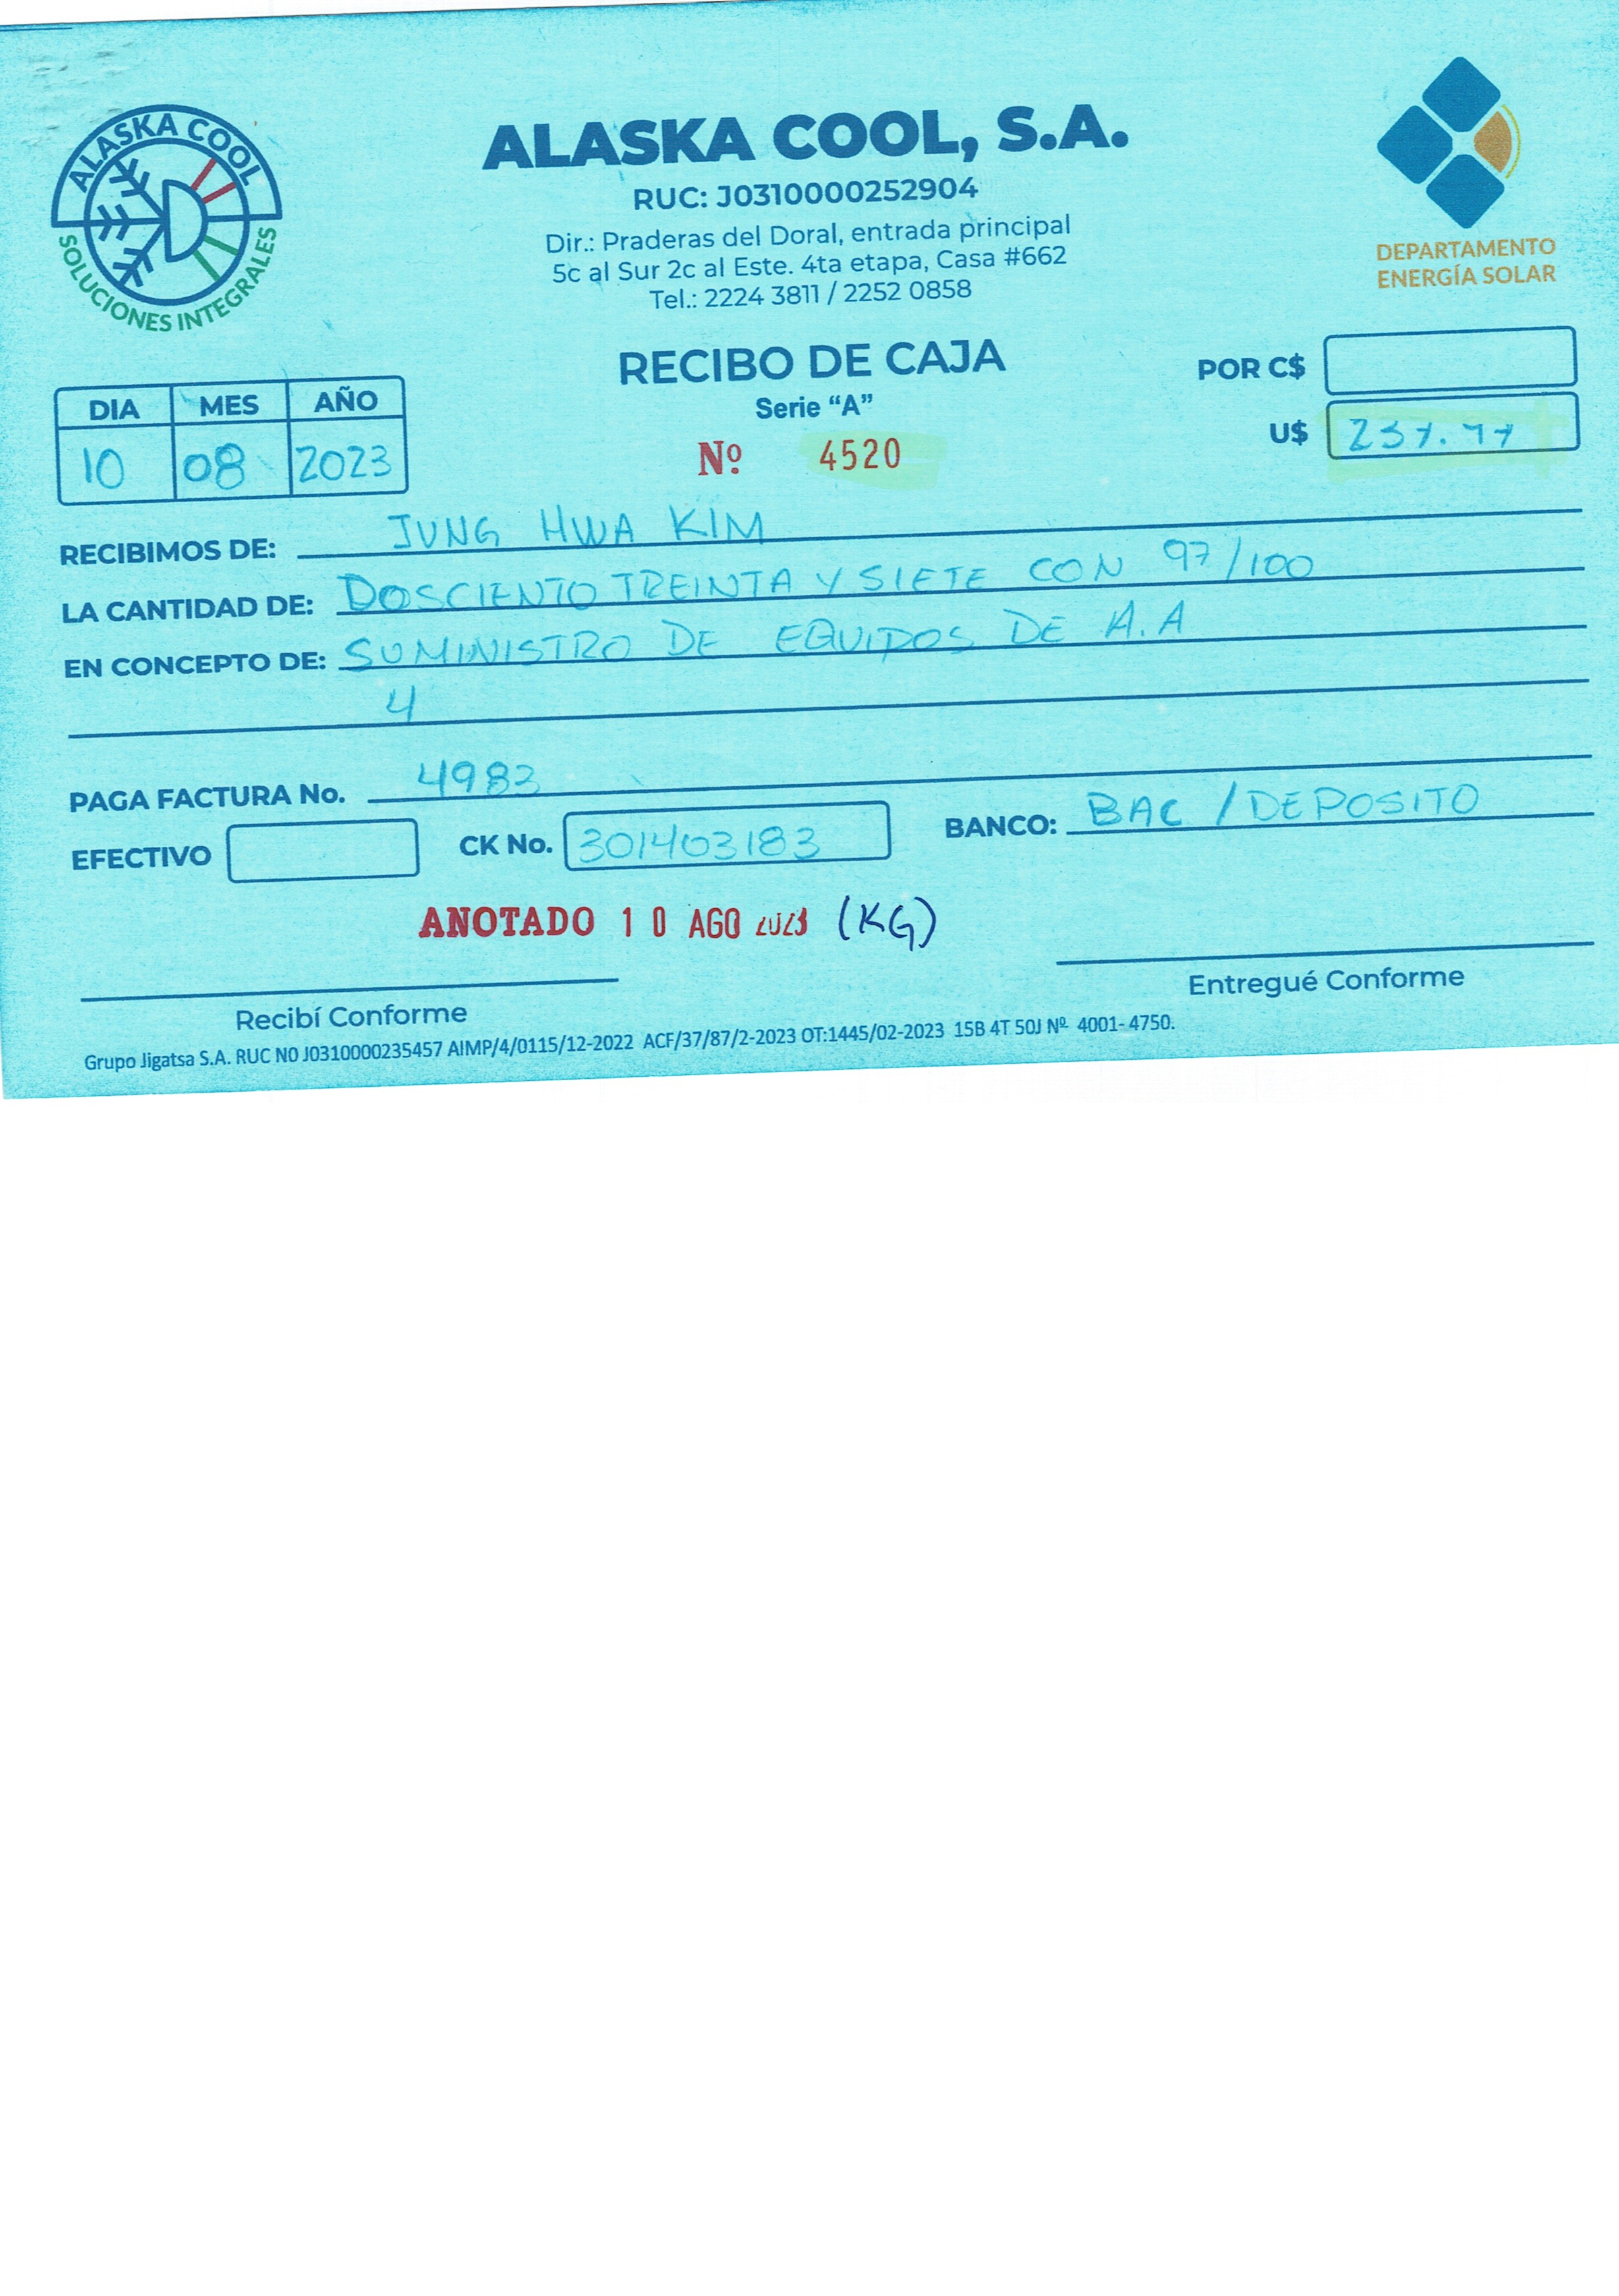 ALASKA COOL
SOLUCIONES INTEGRALES
ALASKA COOL, S.A.
RUC: J0310000252904
Dir.: Praderas del Doral, entrada principal
5c al Sur 2c al Este. 4ta etapa, Casa #662
Tel.: 2224 3811 / 2252 0858
DEPARTAMENTO
ENERGÍA SOLAR
RECIBO DE CAJA
Serie “A”
Nº 4520
POR C$
U$ 237.97
DIA MES AÑO
10 08 2023
RECIBIMOS DE: JUNG HWA KIM
LA CANTIDAD DE: DOSCIENTO TREINTA Y SIETE CON 97/100
EN CONCEPTO DE: SUMINISTRO DE EQUIPOS DE A.A
4
PAGA FACTURA No. 4983
EFECTIVO CK No. 301403183 BANCO: BAC / DEPOSITO
ANOTADO 10 AGO 2023 (KG)
Recibí Conforme
Entregué Conforme
Grupo Jigatsa S.A. RUC N0 J0310000235457 AIMP/4/0115/12-2022 ACF/37/87/2-2023 OT:1445/02-2023 15B 4T 50J Nº 4001- 4750.